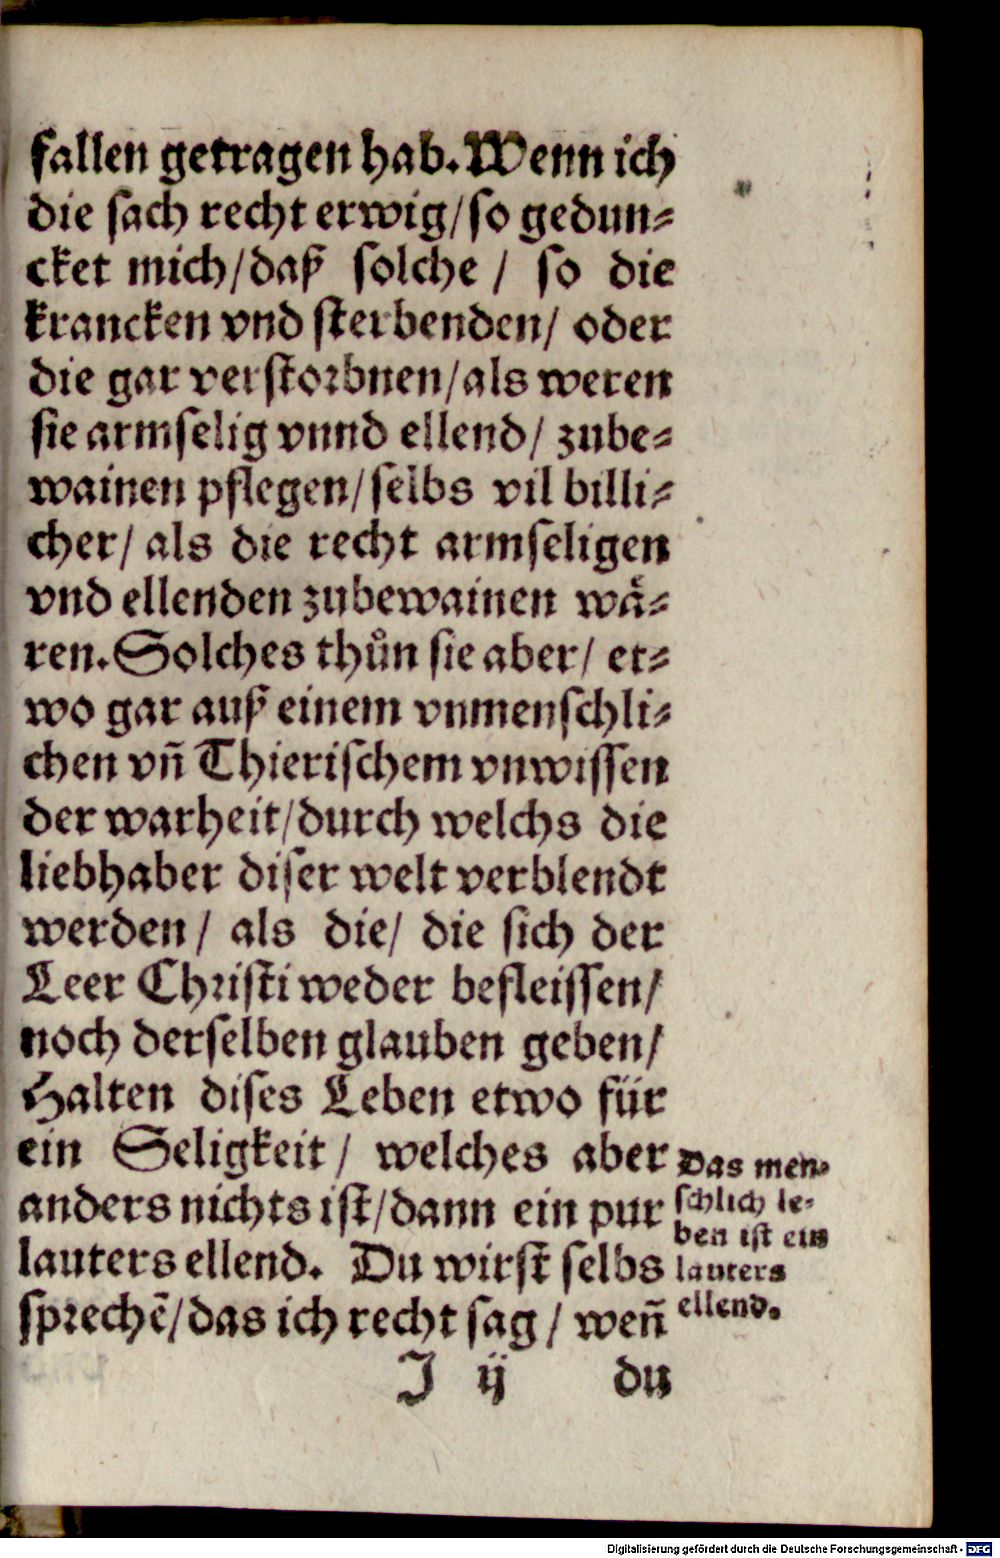 fallen getragen hab. Wenn ich
die sach recht erwig/ so gedun⸗
cket mich/ daß solche / so die
krancken vnd sterbenden/ oder
die gar verstorbnen/ als weren
sie armselig vnnd ellend/ zube⸗
wainen pflegen/ selbs vil billi⸗
cher/ als die recht armseligen
vnd ellenden zubewainen wå⸗
ren. Solches thůn sie aber/ et⸗
wo gar auß einem vnmenschli⸗
chen vñ Thierischem vnwissen
der warheit/ durch welchs die
liebhaber diser welt verblendt
werden/ als die/ die sich der
Leer Christi weder befleissen/
noch derselben glauben geben/
Halten dises Leben etwo für
ein Seligkeit/ welches aber
anders nichts ist/ dann ein pur
lauters ellend. Du wirst selbs
sprechẽ/ das ich recht sag / weñ
J ij du
Das men⸗
schlich le⸗
ben ist ein
lauters
ellend.
Digitalisierung gefördert durch die Deutsche Forschungsgemeinschaft - DFG